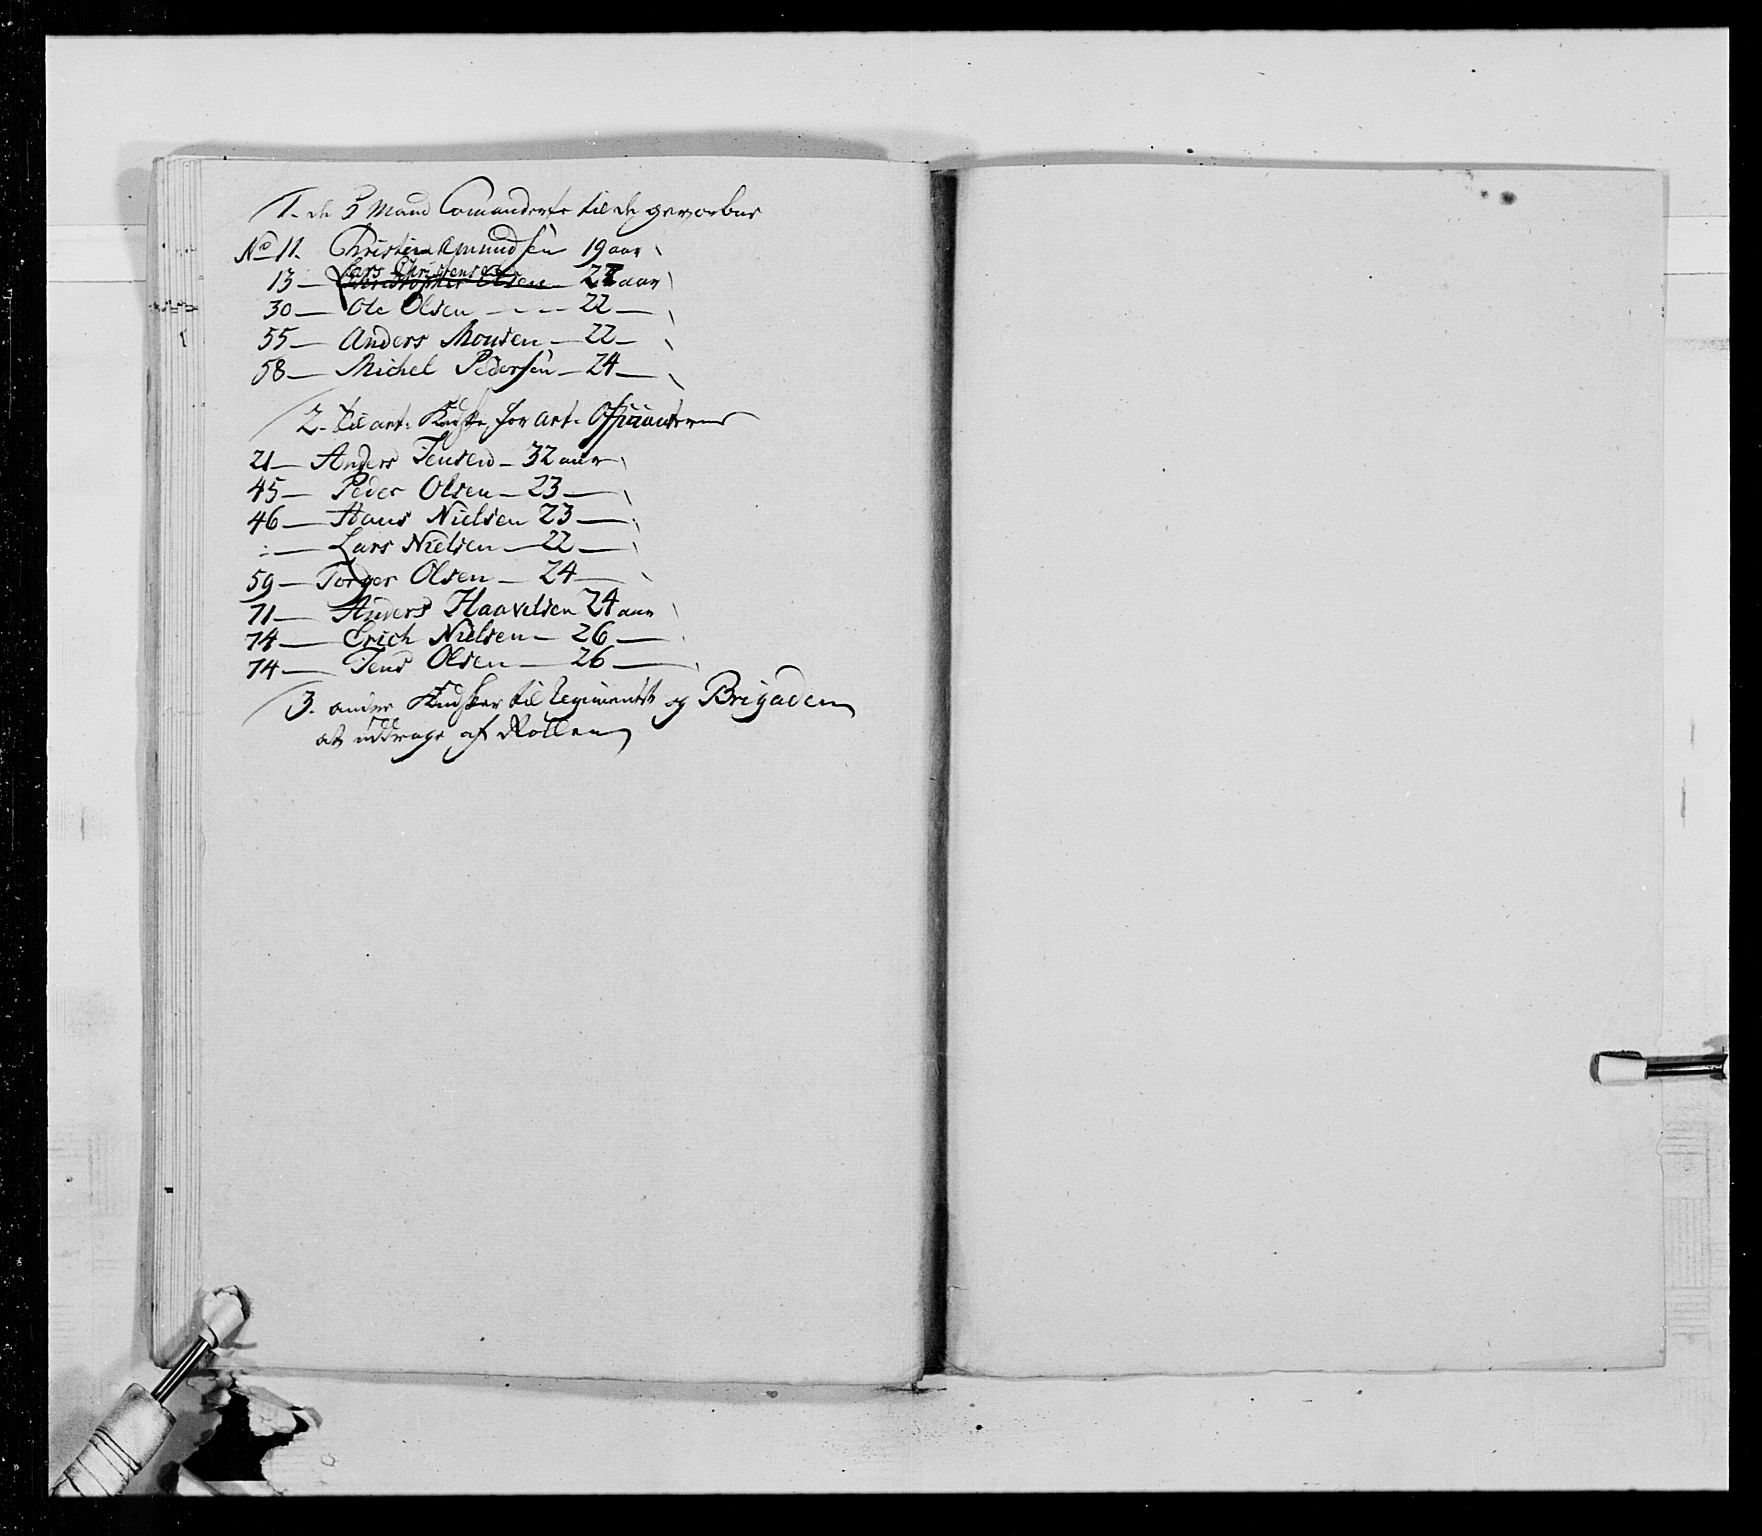 1. de 5 Mand Comanderte til de gevorbne
No 11. Christian Amundsen 19 aar
Lars Christensen
13 — Christopher Olsen — 22 aar
30 — Ole Olsen — — — 22 —
55 — Anders Monsen — 22 —
58 — Michel Pedersen — 24 —
2. til art. Kudske for art. Officiererne
21 — Anders Jensen — 32 aar
45 — Peder Olsen — 23 —
46 — Hans Nielsen 23 —
: — Lars Nielsen — 22 —
59 — Torger Olsen — 24 —
71 — Anders Haavelsen 24 aar
74 — Erich Nielsen — 26 —
74 — Jens Olsen — 26 —
3. andre Kudsker til Regimentet og Brigaden
at uddrage af Rollen